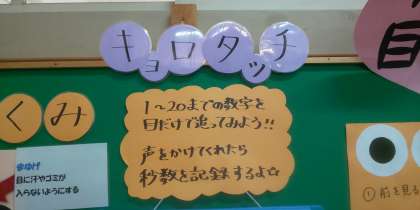 キョロタッチ
目
くみ
1〜20までの数字を
目だけで追ってみよう!!
声をかけてくれたら
秒数を記録するよ☆
まゆげ
目に汗やゴミが
入らないようにする
①前を見る